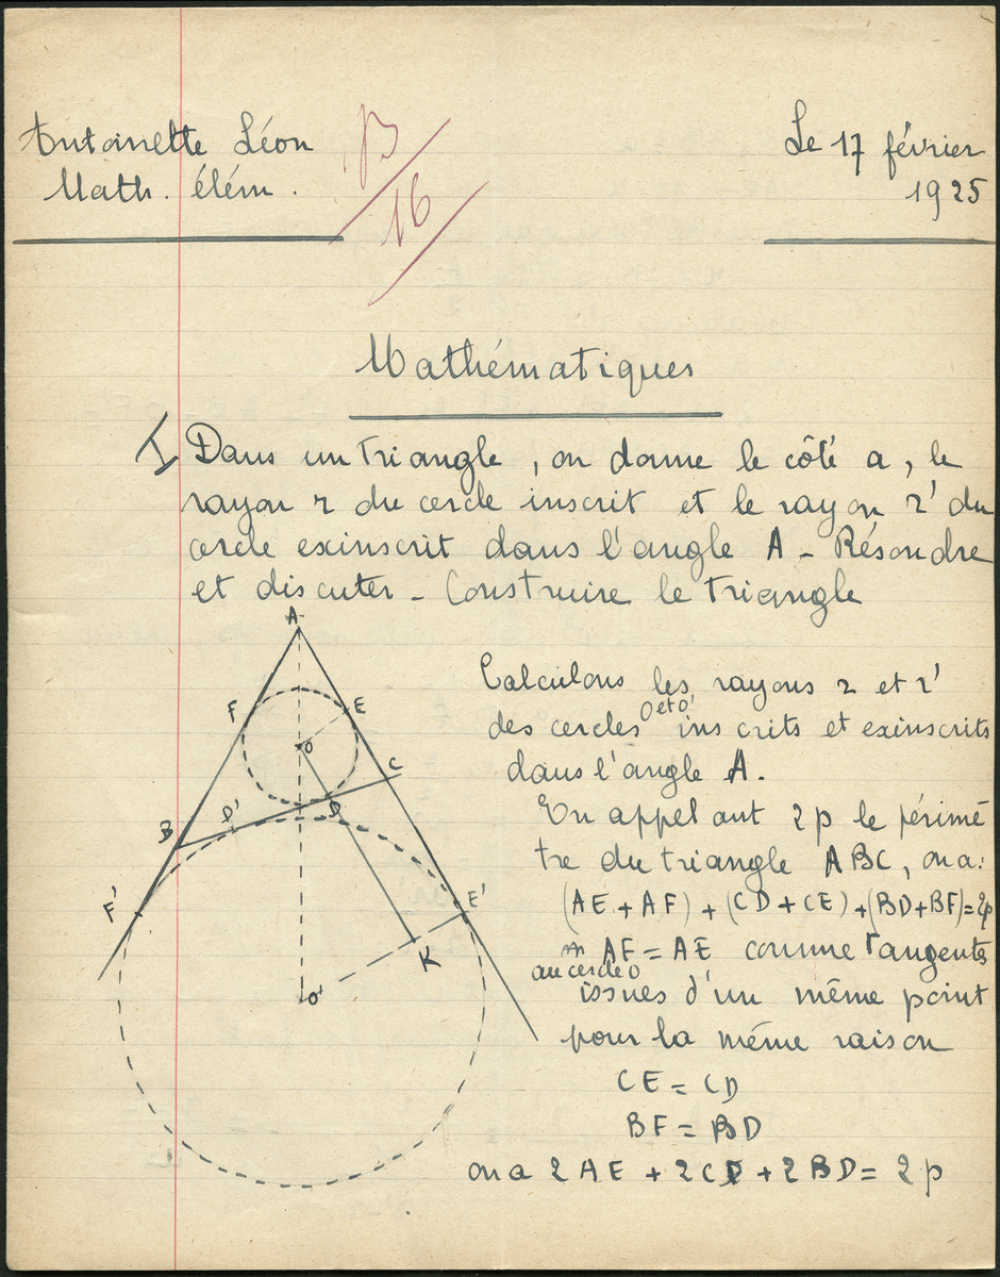 Antoinette Léon
Math. élém.
B
16
Le 17 février
1925
Mathématiques
I Dans un triangle, on donne le côté a, le
rayon r du cercle inscrit et le rayon r' du
cercle exinscrit dans l'angle A - Résoudre
et discuter - Construire le triangle
A
F
E
O
C
B
D'
D
F'
E'
K
O'
Calculons les rayons r et r'
des cercles O et O' inscrits et exinscrits
dans l'angle A.
En appelant 2p le périmè
tre du triangle ABC, on a:
(AE + AF) + (CD + CE) + (BD + BF) = 2p
AF = AE comme tangentes
au cercle O
issues d'un même point
pour la même raison
CE = CD
BF = BD
on a 2AE + 2CD + 2BD = 2p